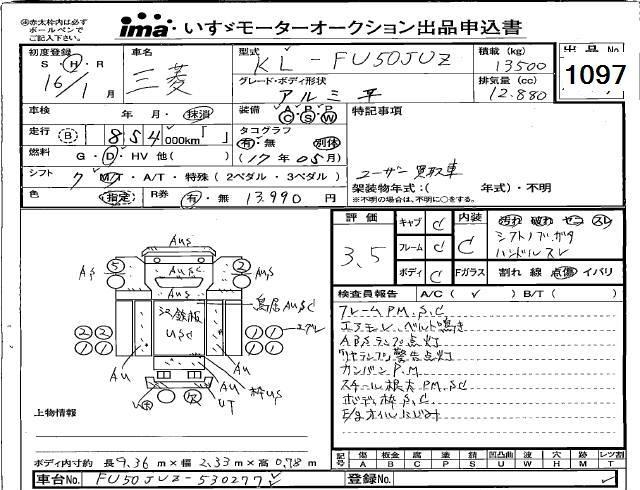 ※赤太枠内は必ず
ボールペンで
ご記入下さい。
ima いすゞモーターオークション出品申込書
初度登録 S・H・R 16年/1月
車名 三菱
型式 KL-FU50JUZ
積載(kg) 13500
出品No. 1097
グレード・ボディ形状 アルミ平
排気量(cc) 12.880
車検 年 月・抹消
装備 A P P C S W
特記事項
走行 B 854,000km「 」
タコグラフ 有・無 別体
燃料 G・D・HV 他( )
(17年05月)
シフト 7 M/T・A/T・特殊(2ペダル・3ペダル)
ユーザー買取車
架装物年式:( 年式)・不明
色 (指定) R券 有・無 13,990円
※不明の場合は、不明に○をする。
評価 3.5
キャブ C
フレーム C
ボディ C
内装 C
汚れ 破れ ヤニ スレ
シフトノブガタ
ハンドルスレ
Fガラス 割れ 線 点傷 イバリ
検査員報告 A/C( ✓ ) B/T( )
フレームP.M.S.C
エアモレ、ベルト鳴き
ABSランプ点灯
警告点灯
カンバンP.M
スチール根太PM.SC
ボディ枠S.C
E/gオイルにじみ
AuS
AuSC
AS
Aus
5
2
鳥居AuSC
鉄板
USC
2 2
2 2
1 1
1 1
エグレ
Au
Au
枠US
UT
上物情報
ボディ内寸約 長9.36m×幅2.33m×高0.78m
記号 傷A 板金B 腐C 塗P 錆S 凹凸曲U 波W 穴H 跡M レツ割T
車台No. FU50JUZ-530277
登録No.